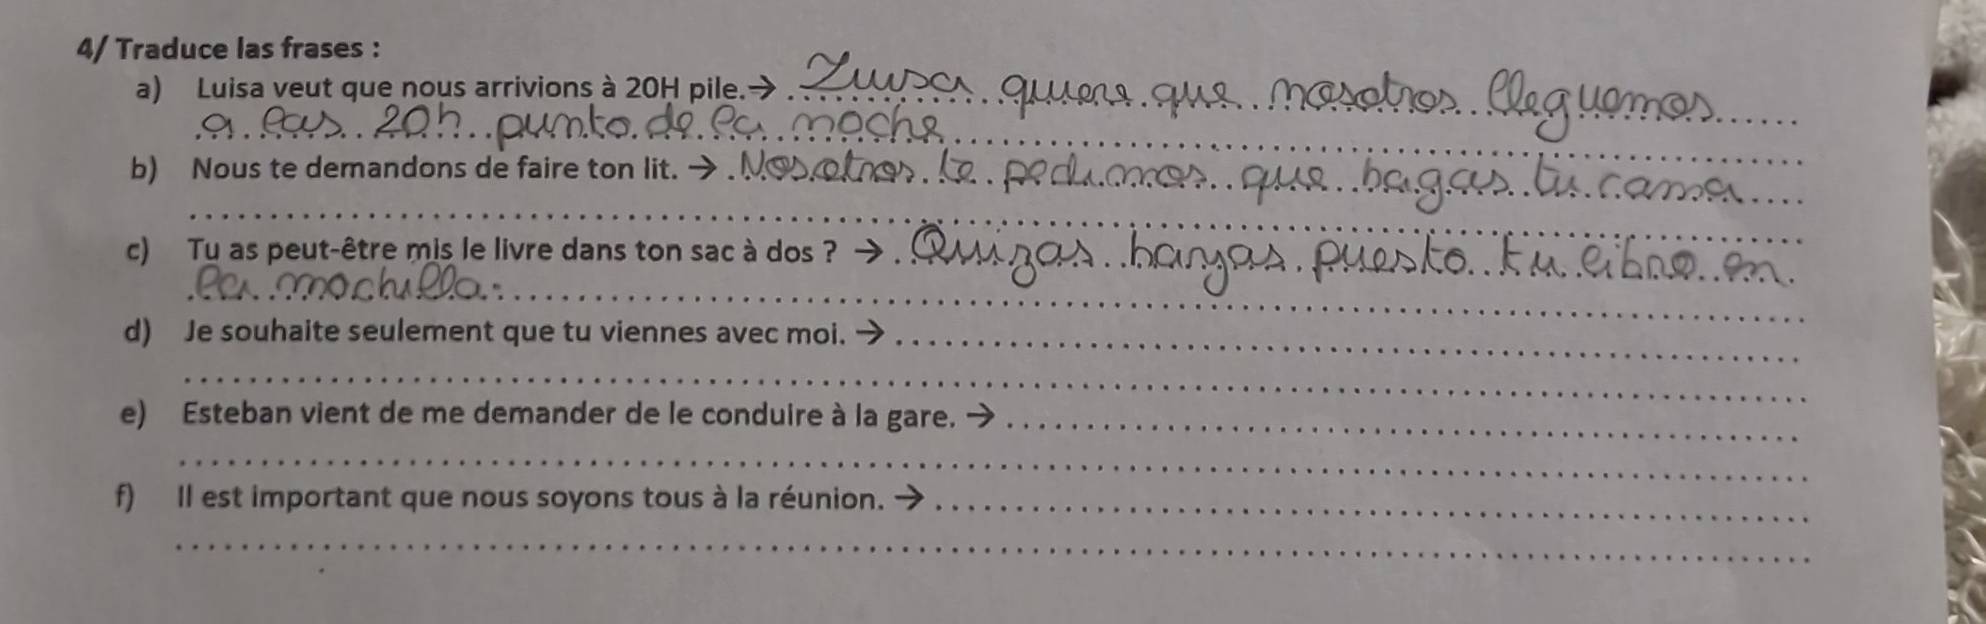 4/ Traduce las frases :
a) Luisa veut que nous arrivions à 20H pile.→ Luisa quiere que nosotros lleguemos
a las 20h punto de la noche
b) Nous te demandons de faire ton lit. → Nosotros te pedimos que hagas tu cama
c) Tu as peut-être mis le livre dans ton sac à dos ? → Quizas hayas puesto tu libro en
la mochilla.
d) Je souhaite seulement que tu viennes avec moi. →
e) Esteban vient de me demander de le conduire à la gare. →
f) Il est important que nous soyons tous à la réunion. →